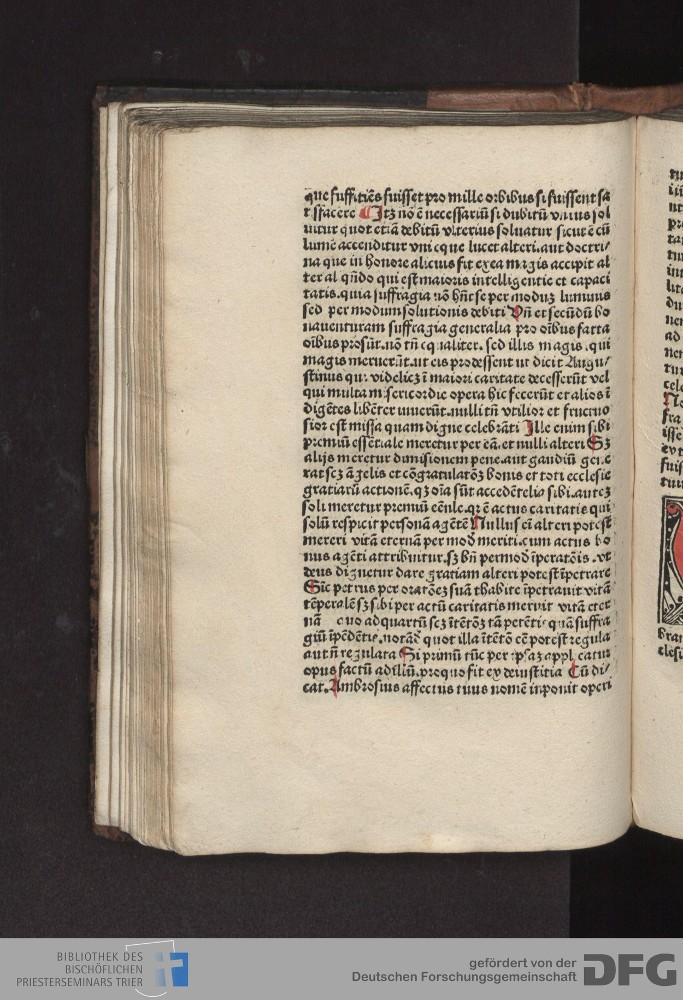 que suffitiēs fuisset pro mille orbibus si fuissent sa
t sfacere Itꝫ nō ē necessariū si dubitū vnius sol
uitur quot etiā debitū vlterius soluatur sicut ē cū
lumē accenditur vni cque lucet alteri.aut doctri/
na que in honore alicuius fit ex ea magis accipit al
ter al qn̄do qui est maioris intelligentie et capaci
tatis.quia suffragia nō hn̄t se per moduꝫ luminis
sed per modum solutionis debiti Vn̄ et secūdū bo
nauenturam suffragia generalia pro oībus facta
oībus prosūt.nō tn̄ equaliter. sed illis magis .qui
magis meruerūt.ut eis prodessent ut dicit Augu/
stinus qui videlicꝫ ī maiori caritate decesserūt vel
qui multa misericordie opera hic fecerūt et alios ī
digētes libēter iuuerūt.nulli tn̄ vtilior et fructuo
sior est missa quam digne celebrāti Ille enim sibi
premiū essētiale meretur per eā.et nulli alteri Sꝫ
alijs meretur dimisionem pene.aut gaudiū gene
rat scꝫ āgelis et cōgratulatōꝫ bonis et toti ecclesie
gratiarū actionē.qꝫ oīa sūt accedētelia sibi.auteꝫ
soli meretur premiū eēnle.qꝛ ē actus caritatis qui
solū respicit personā agētē Nullus eī alteri potest
mereri vitā eternā per mod̄ meriti.cum actus bo
nus agēti attribuitur.sꝫ bn̄ per mod īperatōis .vt
deus dignetur dare gratiam alteri potest īpetrare
Sic petrus per oratōeꝫ suā thabite īpetrauit vitā
tēperalē sꝫ sibi per actū caritatis meruit vitā eter
nā   uo ad quartū scꝫ ītētōꝫ tā petētis quā suffra
giū īpēdētis.notād̄ quot illa ītētō eē potest regula
aut n̄ regulata Si primū tūc per ip̄saꝫ applicatur
opus factū ad illū.pro quo fit ex dei iustitia Cū di/
cat.Ambrosius affectus tuus nomē inponit operi
BIBLIOTHEK DES
BISCHÖFLICHEN
PRIESTERSEMINARS TRIER
gefördert von der
Deutschen Forschungsgemeinschaft
DFG